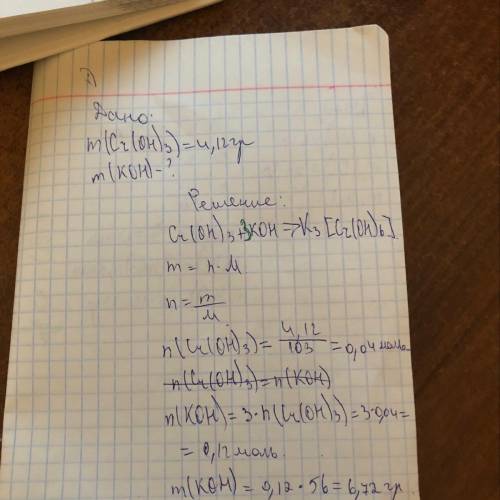 Дано:
m(Cr(OH)3)=4,12гр
m(KOH)-?
Решение:
Cr(OH)3+3KOH=>K3[Cr(OH)6].
m=n·M.
n=m/M.
n(Cr(OH)3)=4,12/103=0,04моль.
n(Cr(OH)3)=n(KOH)
n(KOH)=3·n(Cr(OH)3)=3·0,04=
=0,12моль.
m(KOH)=0,12·56=6,72гр.